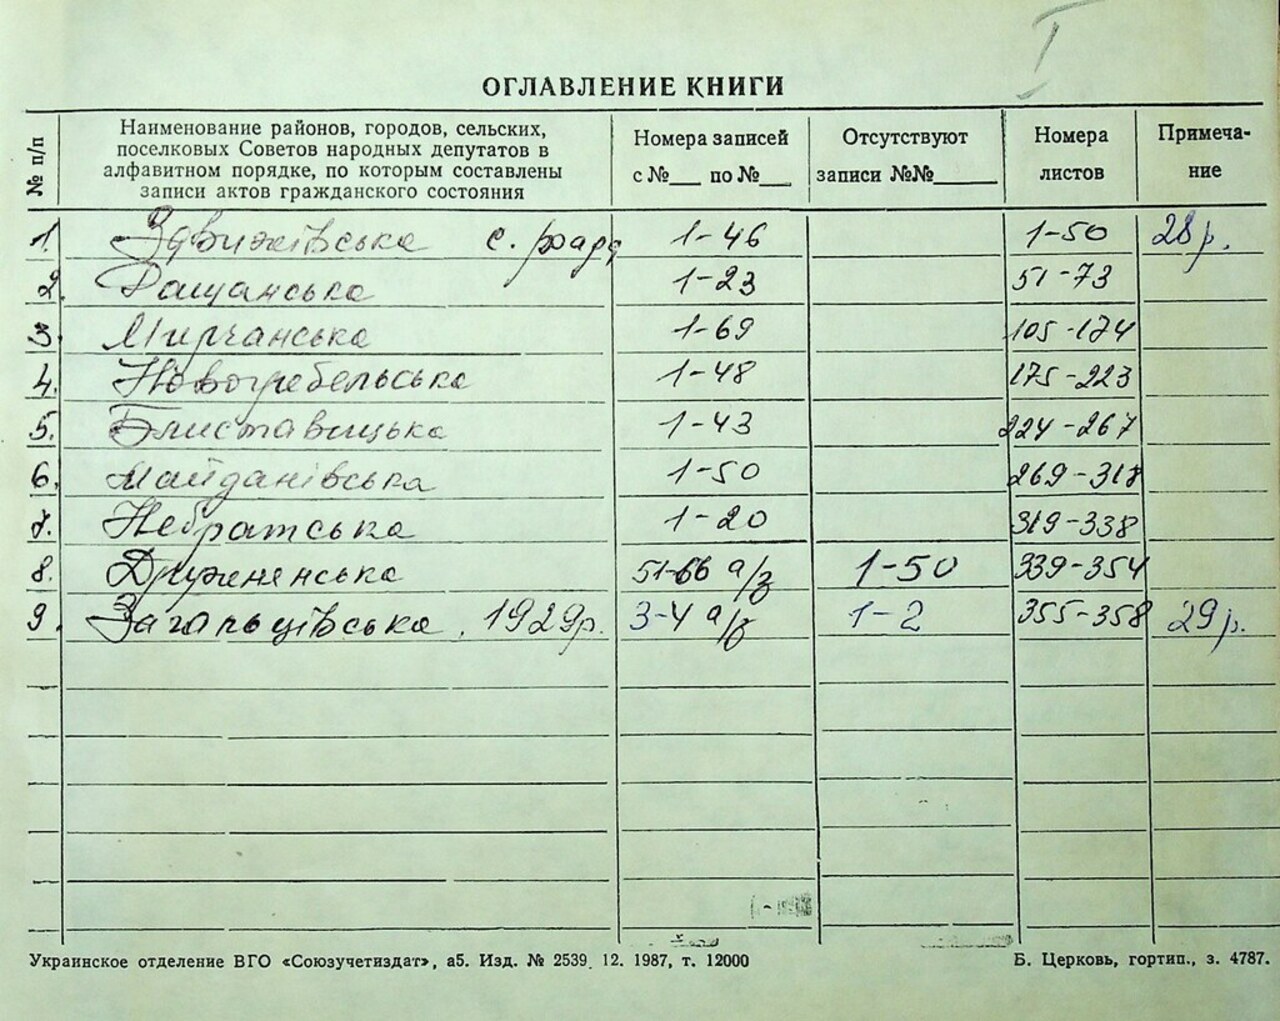 I
ОГЛАВЛЕНИЕ КНИГИ
№ п/п
Наименование районов, городов, сельских,
поселковых Советов народных депутатов в
алфавитном порядке, по которым составлены
записи актов гражданского состояния
Номера записей
с №___ по №___
Отсутствуют
записи №№______
Номера
листов
Примеча-
ние
1. Здвижівська с. рада 1-46 1-50 28 р.
2. Ращанська 1-23 51-73
3. Мирчанська 1-69 105-174
4. Новогребельська 1-48 175-223
5. Блиставицька 1-43 224-267
6. Майданівська 1-50 269-318
7. Небратська 1-20 319-338
8. Дружненська 51-66 а/з 1-50 339-354
9. Загальцівська. 1929р. 3-4 а/з 1-2 355-358 29 р.
Украинское отделение ВГО «Союзучетиздат», а5. Изд. № 2539. 12. 1987, т. 12000
Б. Церковь, гортип., з. 4787.